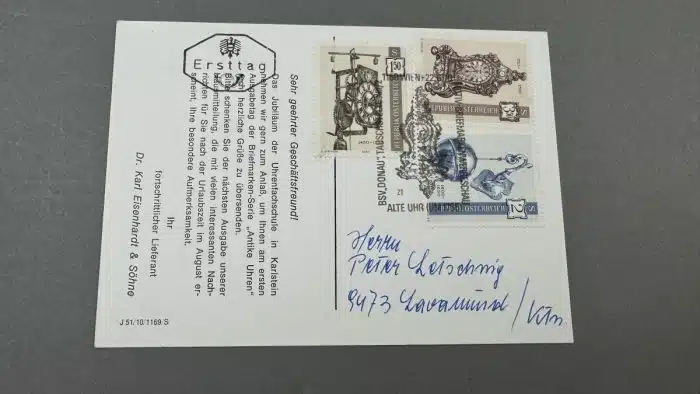 Ersttag
Sehr geehrter Geschäftsfreund!
Das Jubiläum der Uhrenfachschule in Karlstein
nehmen wir gern zum Anlaß, um Ihnen am ersten
Ausgabetag der Briefmarken-Serie „Antike Uhren"
sich herzliche Grüße zu übersenden.
Bitte schenken Sie der nächsten Ausgabe unserer
Hausmitteilung, die mit vielen interessanten Nach-
richten für Sie nach der Urlaubszeit im August er-
scheint, Ihre besondere Aufmerksamkeit.
Ihr
fortschrittlicher Lieferant
Dr. Karl Eisenhardt & Söhne
J 51/10/1169 S
S 1.50
REPUBLIK ÖSTERREICH
REPUBLIK ÖSTERREICH
REPUBLIK ÖSTERREICH
S 2
WIEN
BSV. DONAUSTADT
ALTE UHR
Herrn
Peter Lotschnig
9473 Lavamünd / Ktn.